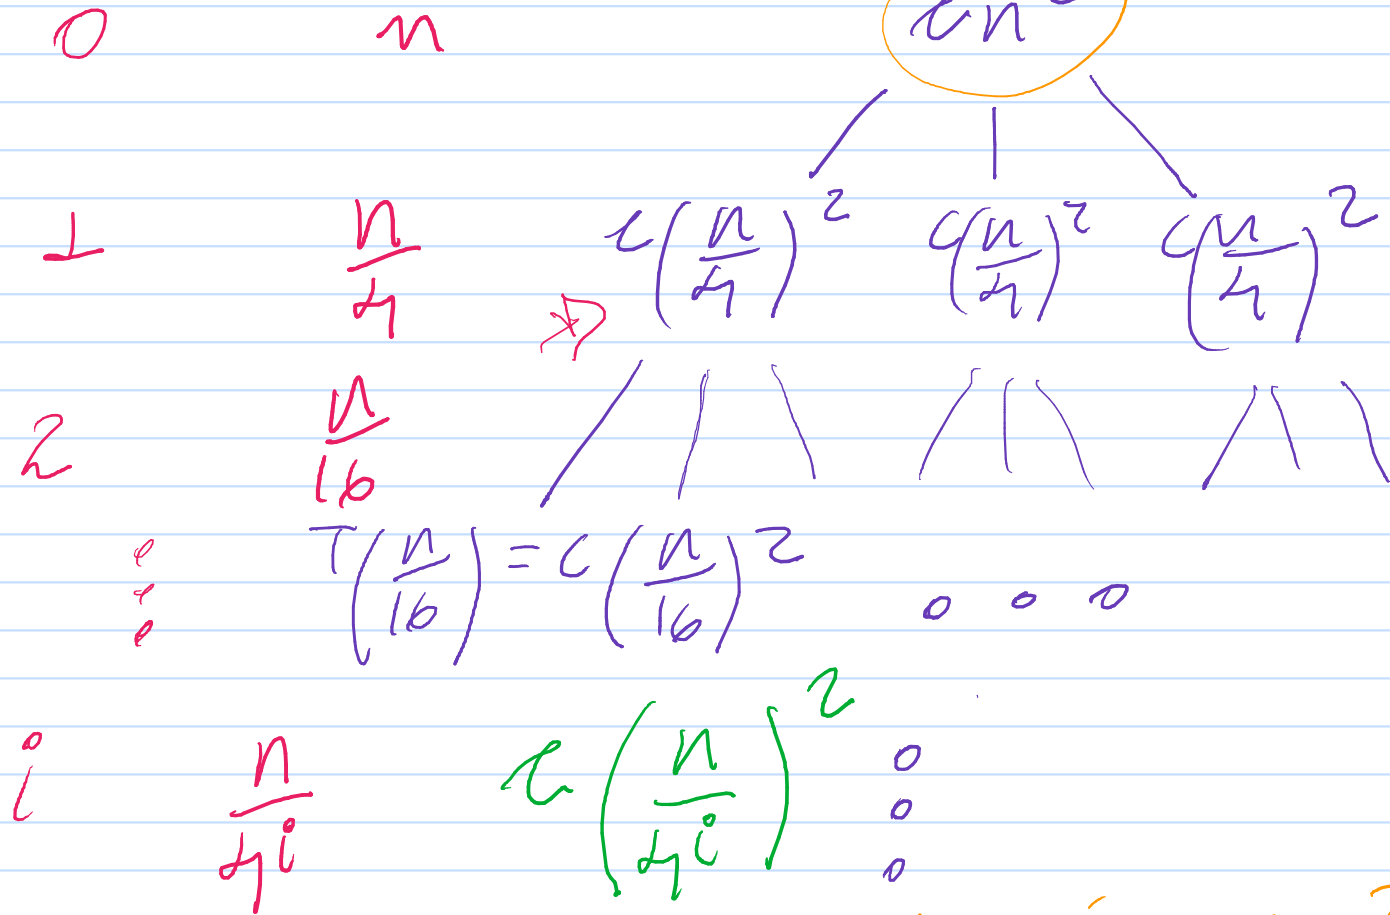 0 n cn²
1 n/4 c(n/4)² c(n/4)² c(n/4)²
2 n/16
T(n/16) = c(n/16)²
i n/4^i c(n/4^i)²